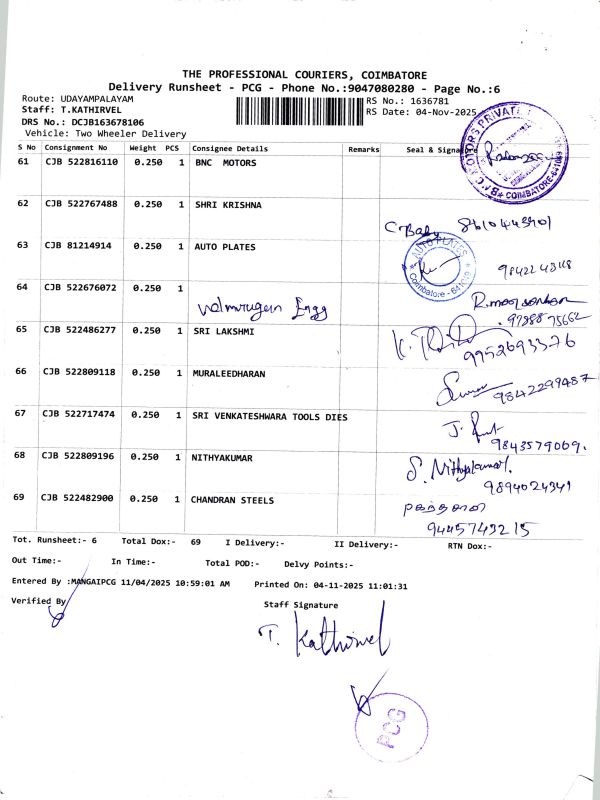 THE PROFESSIONAL COURIERS, COIMBATORE
Delivery Runsheet - PCG - Phone No.:9047080280 - Page No.:6
Route: UDAYAMPALAYAM
RS No.: 1636781
Staff: T.KATHIRVEL
RS Date: 04-Nov-2025
DRS No.: DCJB163678106
Vehicle: Two Wheeler Delivery
S No Consignment No Weight PCS Consignee Details Remarks Seal & Signature
61 CJB 522816110 0.250 1 BNC MOTORS
MOTORS PRIVATE
COIMBATORE-641049
62 CJB 522767488 0.250 1 SHRI KRISHNA
C. Baby
63 CJB 81214914 0.250 1 AUTO PLATES
AUTO PLATES
Coimbatore - 641049
64 CJB 522676072 0.250 1
65 CJB 522486277 0.250 1 SRI LAKSHMI
9952693376
66 CJB 522809118 0.250 1 MURALEEDHARAN
9842299487
67 CJB 522717474 0.250 1 SRI VENKATESHWARA TOOLS DIES
9843579069.
68 CJB 522809196 0.250 1 NITHYAKUMAR
S. Nithyakumar.
9894024341
69 CJB 522482900 0.250 1 CHANDRAN STEELS
9445743215
Tot. Runsheet:- 6 Total Dox:- 69 I Delivery:- II Delivery:- RTN Dox:-
Out Time:- In Time:- Total POD:- Delvy Points:-
Entered By :MANGAIPCG 11/04/2025 10:59:01 AM Printed On: 04-11-2025 11:01:31
Verified By
Staff Signature
T. Kathirvel
PCG